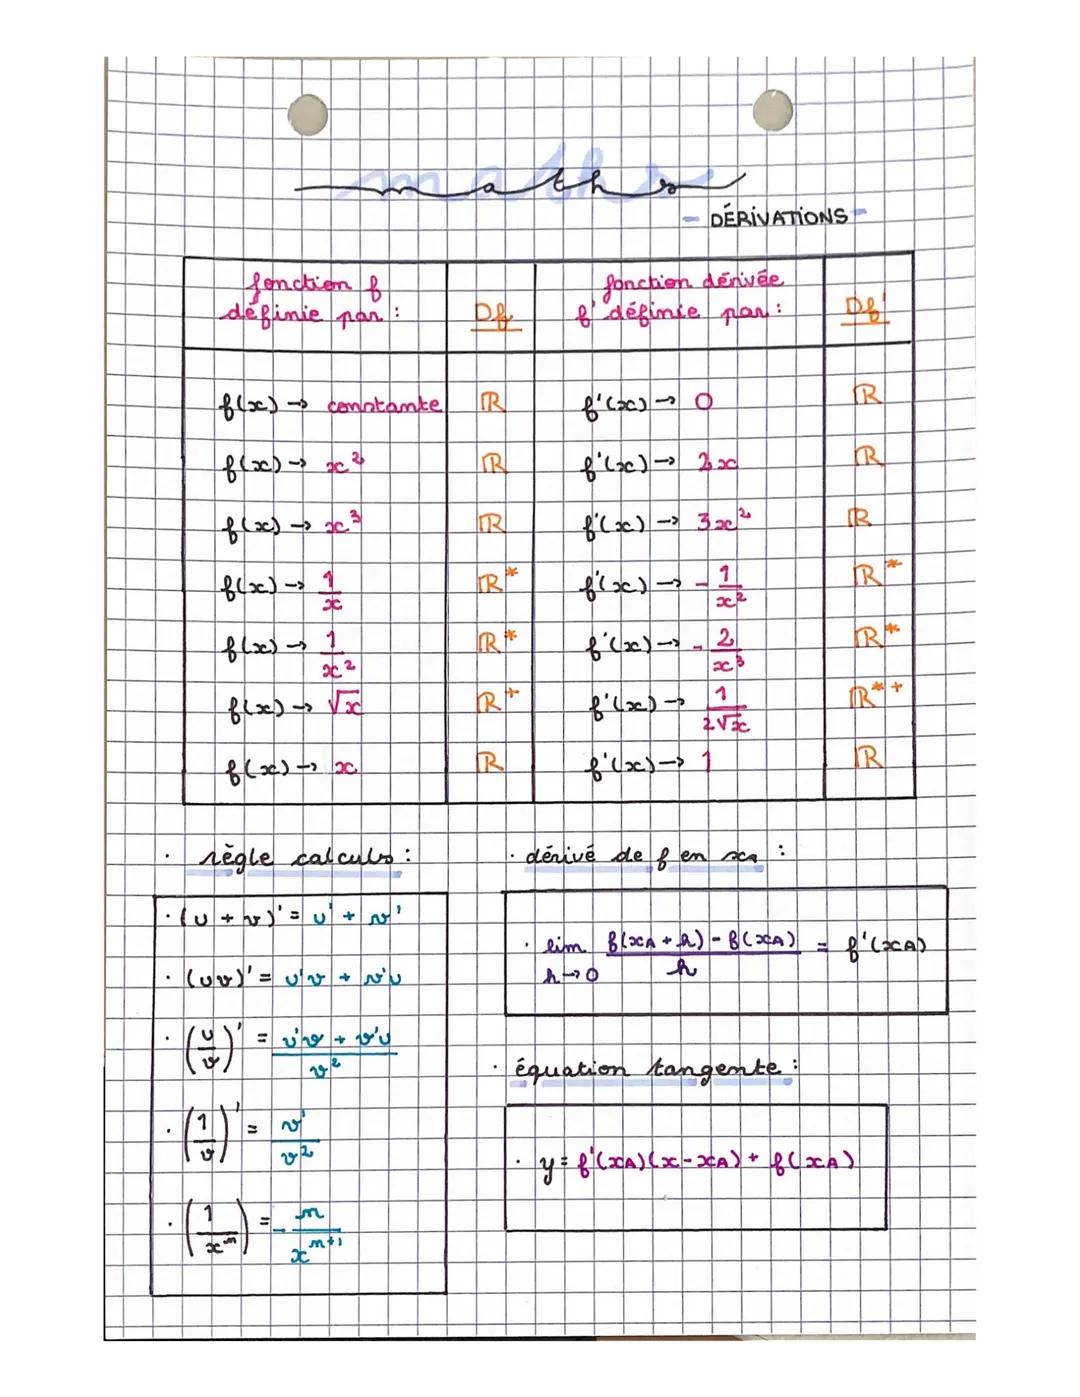 maths
- DÉRIVATIONS -
fonction f définie par : | Df | fonction dérivée f' définie par : | Df'
f(x) → constante | ℝ | f'(x) → 0 | ℝ
f(x) → x² | ℝ | f'(x) → 2x | ℝ
f(x) → x³ | ℝ | f'(x) → 3x² | ℝ
f(x) → 1/x | ℝ* | f'(x) → -1/x² | ℝ*
f(x) → 1/x² | ℝ* | f'(x) → -2/x³ | ℝ*
f(x) → √x | ℝ+ | f'(x) → 1/(2√x) | ℝ*+
f(x) → x | ℝ | f'(x) → 1 | ℝ
· règle calculs :
· (u + v)' = u' + v'
· (uv)' = u'v + v'u
· (u/v)' = (u'v + v'u)/v²
· (1/v)' = v'/v²
· (1/xⁿ) = -n/xⁿ⁺¹
· dérivé de f en xA :
· lim h→0 (f(xA + h) - f(xA))/h = f'(xA)
· équation tangente :
· y = f'(xA)(x - xA) + f(xA)